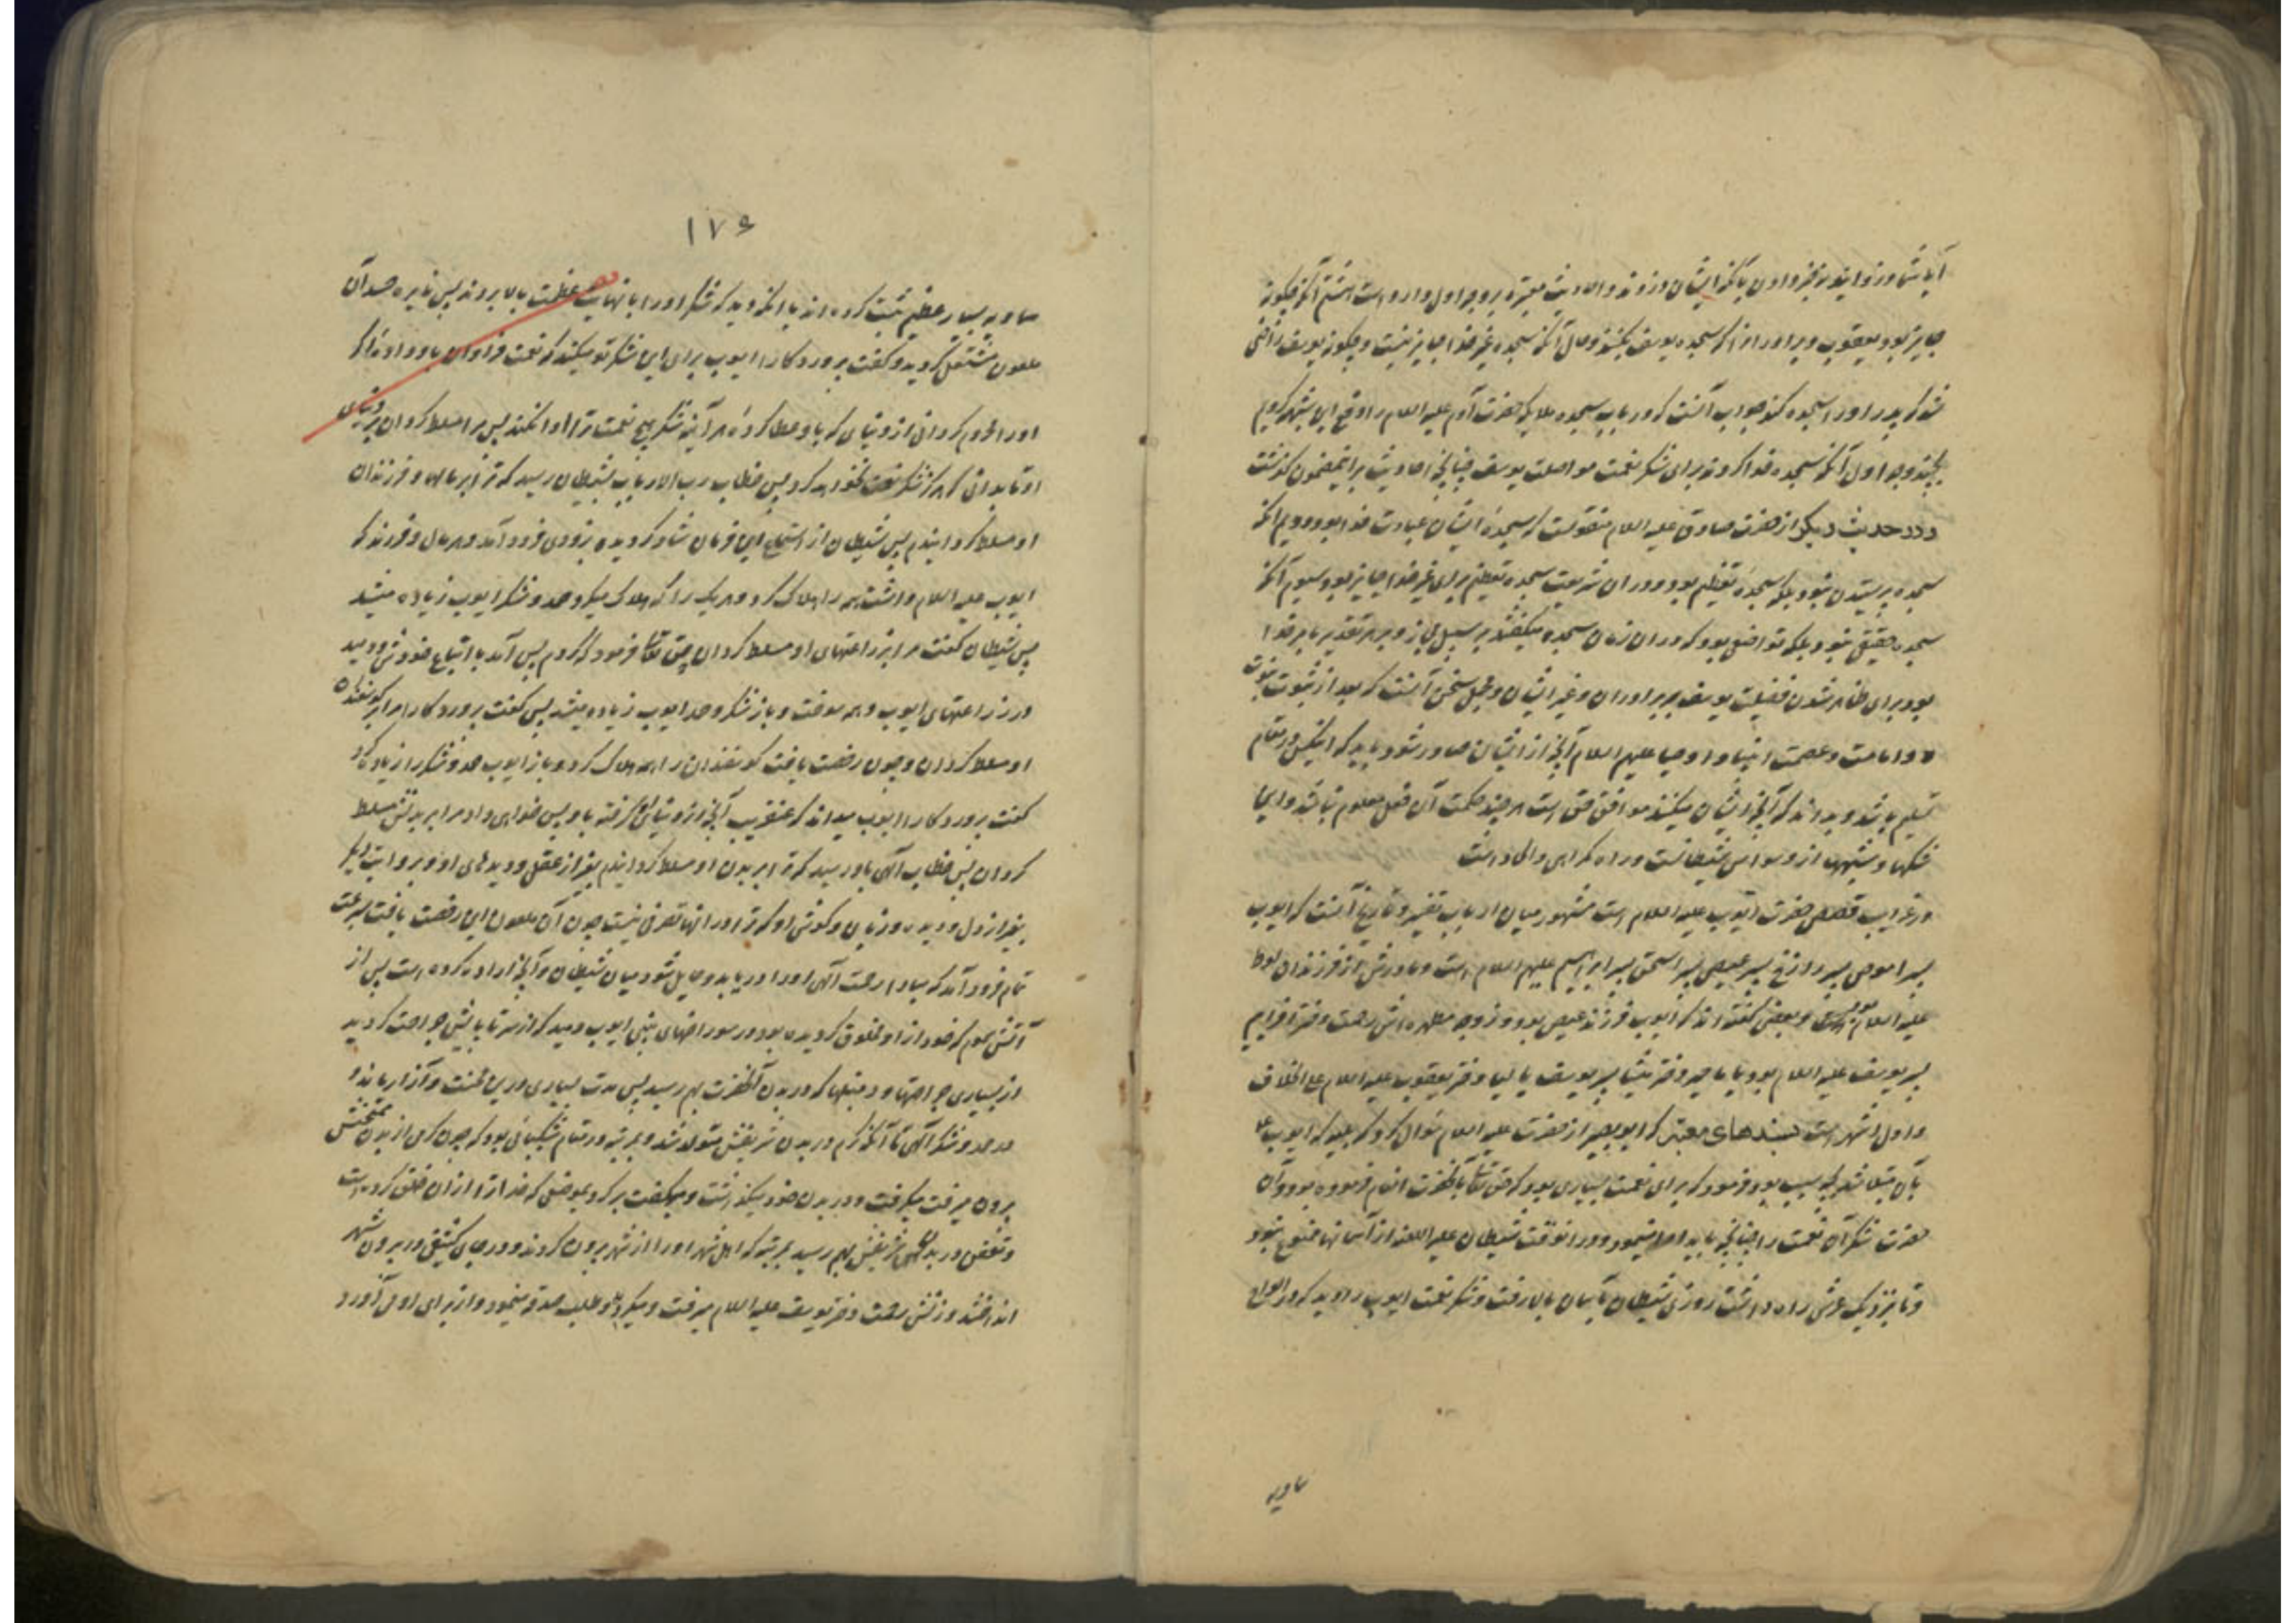 جایز بود یعقوب و برادران را که سجده یوسف بکنند و حال آنکه سجده غیر خدا جایز نیست و چگونه یوسف راضی
شد که پدر او را سجده کند جواب آنست که در باب سجده ملایکه حضرت آدم علیه السلام را
بچند وجه اول آنکه سجده خدا کردند برای شکر نعمت مواصلت یوسف چنانچه احادیث براینمضمون گذشت
و در حدیث دیگر از حضرت صادق علیه السلام منقولست که سجدهٔ ایشان عبادت خدا بود دویم آنکه
سجده پرستیدن نبود بلکه سجدهٔ تعظیم بود و در آن شریعت سجده تعظیم برای غیر خدا جایز بود سیوم آنکه
سجده حقیقی نبود بلکه تواضعی بود که در آن زمان سجده میگفتند بر سبیل مجاز و بر هر تقدیر بامر خدا
بود برای ظاهر شدن فضیلت یوسف بر برادران و غیر ایشان و مجمل سخن آنست که بعد از ثبوت نبوت
و امامت و عصمت انبیا و اوصیا علیهم السلام آنچه از ایشان صادر شود باید که اینکس در مقام
تسلیم باشد و بداند که آنچه ایشان میکنند موافق حق است هر چند حکمت آن فعل معلوم نباشد و
شکها و شبهها از وسواس شیطانست و راه گمراهی و الحاد است
در غرایب قصص حضرت ایوب علیه السلام است مشهور میان ارباب تفسیر و تاریخ آنست که ایوب
پسر اموص پسر رازخ پسر عیص پسر اسحق پسر ابراهیم علیهم السلام است و مادرش از فرزندان لوط
علیه السلام بود و بعضی گفته اند که ایوب فرزند عیص بود و زوجه مطهره اش رحمت دختر افرایم
پسر یوسف علیه السلام بود یا ماخیر دختر میشا پسر یوسف یا لیا دختر یعقوب علیه السلام علی الخلاف
و اول اشهر است بسندهای معتبر که ابوبصیر از حضرت علیه السلام سوال کرد که بلیه که ایوب
بآن مبتلا شد بچه سبب بود فرمود که برای نعمت بسیاری بود که حق تعالی بآنحضرت انعام فرموده بود و آن
حضرت شکر آن نعمت را چنانچه باید ادا مینمود و در آنوقت شیطان علیه اللعنه از آسمانها ممنوع نبود
و تا نزدیک عرش راه داشت روزی شیطان بآسمان بالا رفت و شکر نعمت ایوب را دید که در الواح
سماویه
۱۷۶
سماویه بسیار عظیم ثبت کرده اند یا آنکه دید که شکر او را با نهایت عظمت بالا بردند پس نایره حسد آن
ملعون مشتعل گردید و گفت پروردگارا ایوب برای این شکر تو میکند که نعمت فراوان باو داده اگر
او را محروم گردانی از دنیای که باو عطا کردهٔ هر آینه شکر هیچ نعمت ترا ادا نکند پس مرا مسلط گردان بر دنیای
او تا بدانی که هرگز شکر نعمت نخواهد کرد پس خطاب رب الارباب بشیطان رسید که ترا بر مالها و فرزندان
او مسلط گردانیدم پس شیطان از استماع این فرمان شاد گردیده بزودی فرود آمد و هر مال و فرزند که
ایوب علیه السلام داشت همه را هلاک کرد و هر یک را که هلاک میکرد حمد و شکر ایوب زیاده میشد
پس شیطان گفت مرا بر زراعتهای او مسلط گردان حق تعالی فرمود که کردم پس آمد با اتباع خود و دمید
در زراعتهای ایوب و همه سوخت و باز شکر و حمد ایوب زیاده میشد پس گفت پروردگارا مرا بر گوسفندان
او مسلط گردان و چون رخصت یافت گوسفندان را همه هلاک کرد و باز ایوب حمد و شکر را زیاده کرد
گفت پروردگارا ایوب میداند که عنقریب آنچه از دنیای او گرفته باو پس خواهی داد مرا بر بدنش مسلط
گردان پس خطاب الهی باو رسید که ترا بر بدن او مسلط گردانیدم بغیر از عقل و دیدهای او و بروایت دیگر
بغیر از دل و دیده و زبان و گوش او که ترا در آنها تصرفی نیست چون آن ملعون این رخصت یافت بسرعت
تمام فرود آمد که مبادا رحمت الهی او را دریابد و حایل شود میان شیطان و آنچه اراده کرده است پس از
آتش سموم که خود از او مخلوق گردیده بود در سوراخهای بینی ایوب دمید که از سر تا پایش جراحت گردید
از بسیاری جراحتها و دملها که در بدن آنحضرت بهم رسید پس مدت بسیاری در این محنت و آزار بماند و
در حمد و شکر الهی تا آنکه کرم در بدن شریفش متولد شد و بمرتبه در مقام شکیبائی بود که چون کرمی از بدن ممتحنش
بیرون میرفت میگرفت و در بدن خود میگذاشت و میگفت برگرد بموضعی که خدا ترا از آن خلق کرده است
و تعفنی در بدن شریفش بهم رسید بمرتبه که اهل شهر او را از شهر بیرون کردند و در جای کثیفی در بیرون شهر
انداختند و زنش رحمت دختر یوسف علیه السلام میرفت و میگردید و طلب صدقه مینمود و از برای او می آورد